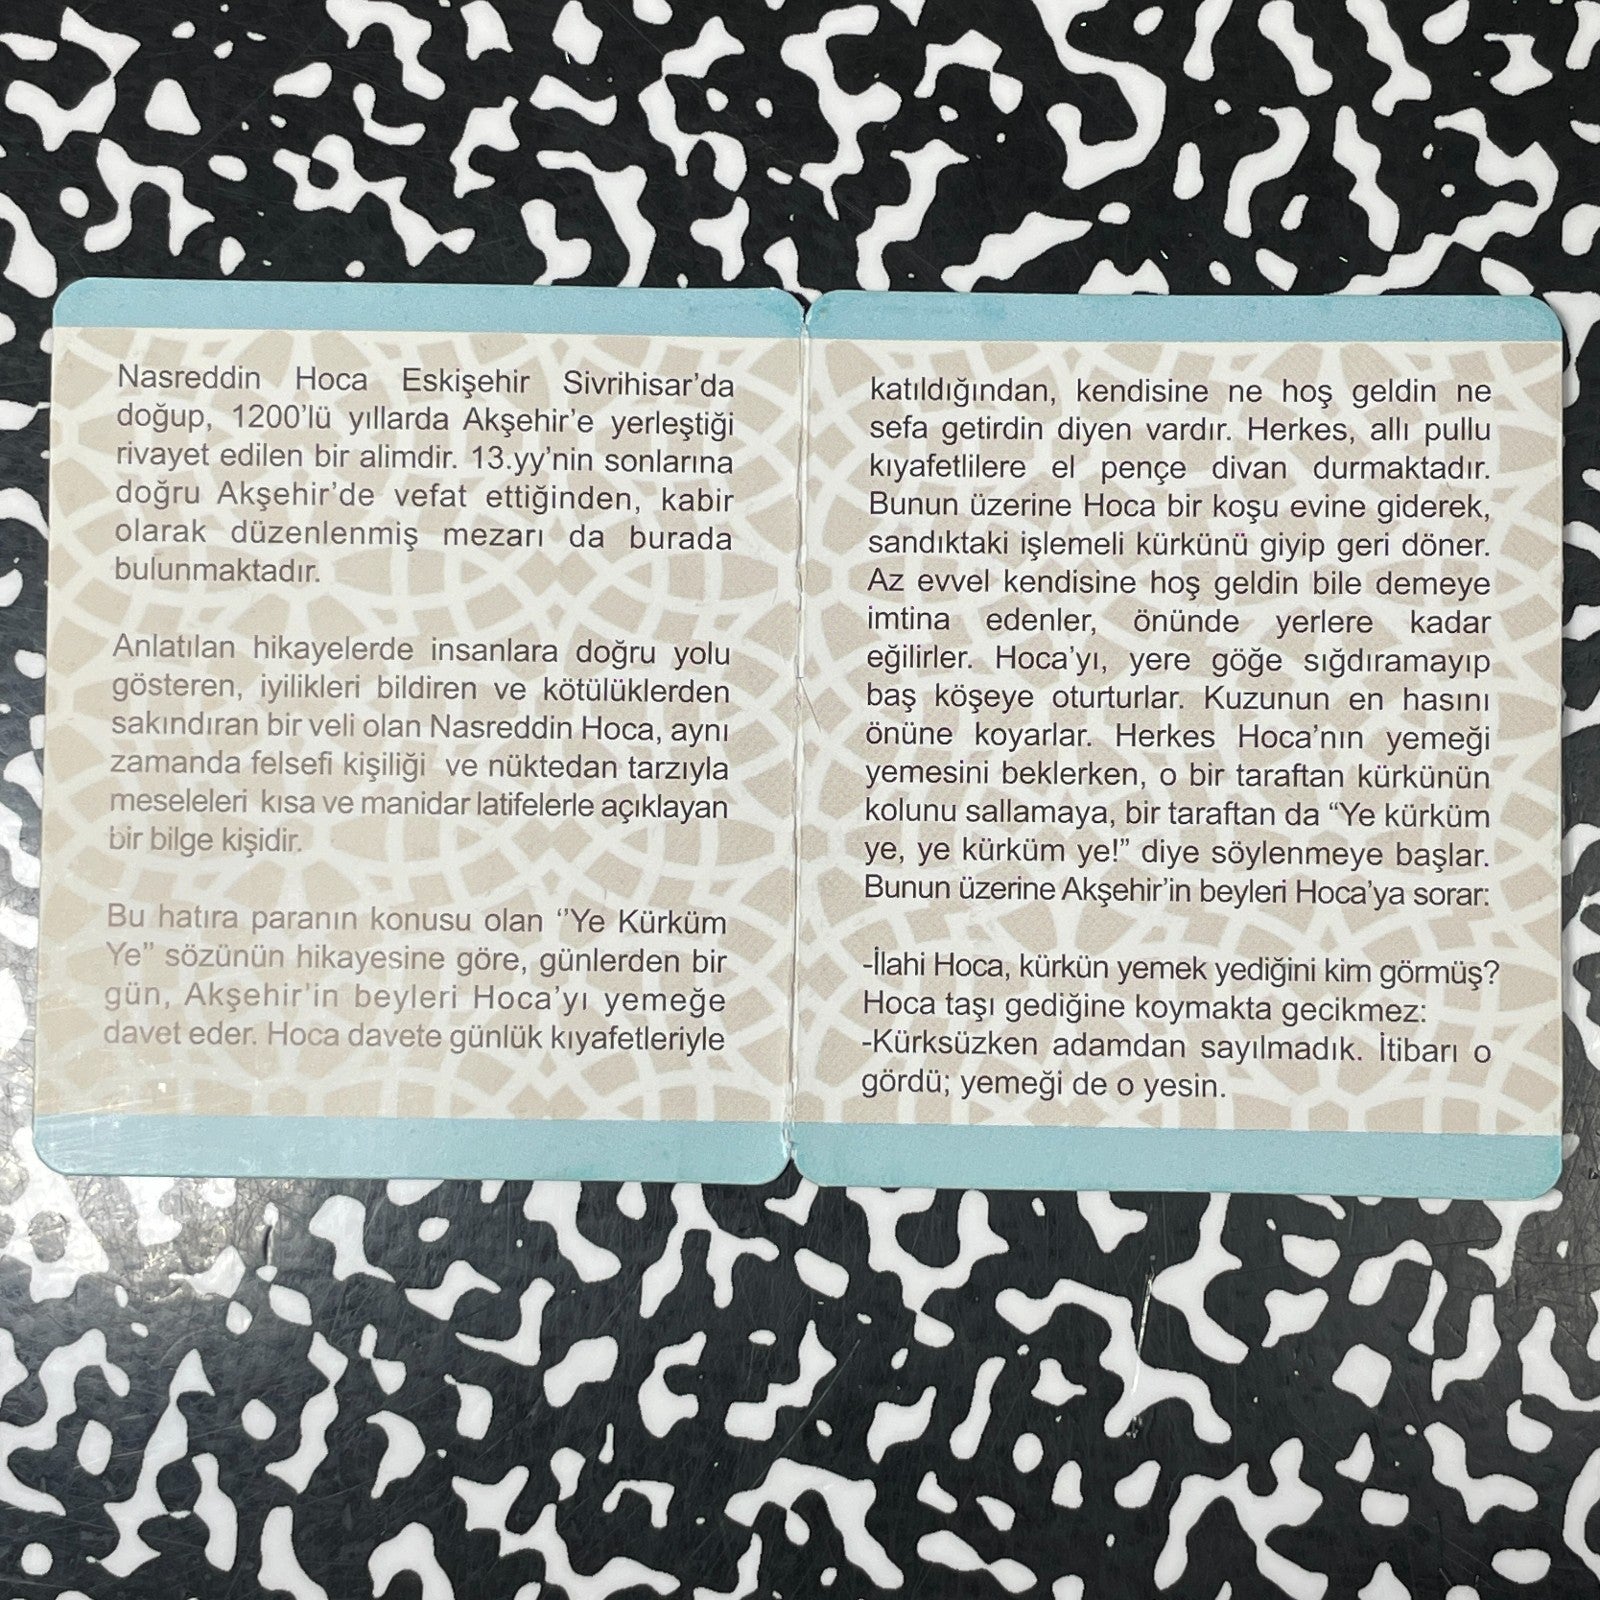 Nasreddin Hoca Eskişehir Sivrihisar’da
doğup, 1200’lü yıllarda Akşehir’e yerleştiği
rivayet edilen bir alimdir. 13.yy’nin sonlarına
doğru Akşehir’de vefat ettiğinden, kabir
olarak düzenlenmiş mezarı da burada
bulunmaktadır.
Anlatılan hikayelerde insanlara doğru yolu
gösteren, iyilikleri bildiren ve kötülüklerden
sakındıran bir veli olan Nasreddin Hoca, aynı
zamanda felsefi kişiliği ve nüktedan tarzıyla
meseleleri kısa ve manidar latifelerle açıklayan
bir bilge kişidir.
Bu hatıra paranın konusu olan ‘’Ye Kürküm
Ye” sözünün hikayesine göre, günlerden bir
gün, Akşehir’in beyleri Hoca’yı yemeğe
davet eder. Hoca davete günlük kıyafetleriyle
katıldığından, kendisine ne hoş geldin ne
sefa getirdin diyen vardır. Herkes, allı pullu
kıyafetlilere el pençe divan durmaktadır.
Bunun üzerine Hoca bir koşu evine giderek,
sandıktaki işlemeli kürkünü giyip geri döner.
Az evvel kendisine hoş geldin bile demeye
imtina edenler, önünde yerlere kadar
eğilirler. Hoca’yı, yere göğe sığdıramayıp
baş köşeye oturturlar. Kuzunun en hasını
önüne koyarlar. Herkes Hoca’nın yemeği
yemesini beklerken, o bir taraftan kürkünün
kolunu sallamaya, bir taraftan da “Ye kürküm
ye, ye kürküm ye!” diye söylenmeye başlar.
Bunun üzerine Akşehir’in beyleri Hoca’ya sorar:
-İlahi Hoca, kürkün yemek yediğini kim görmüş?
Hoca taşı gediğine koymakta gecikmez:
-Kürksüzken adamdan sayılmadık. İtibarı o
gördü; yemeği de o yesin.